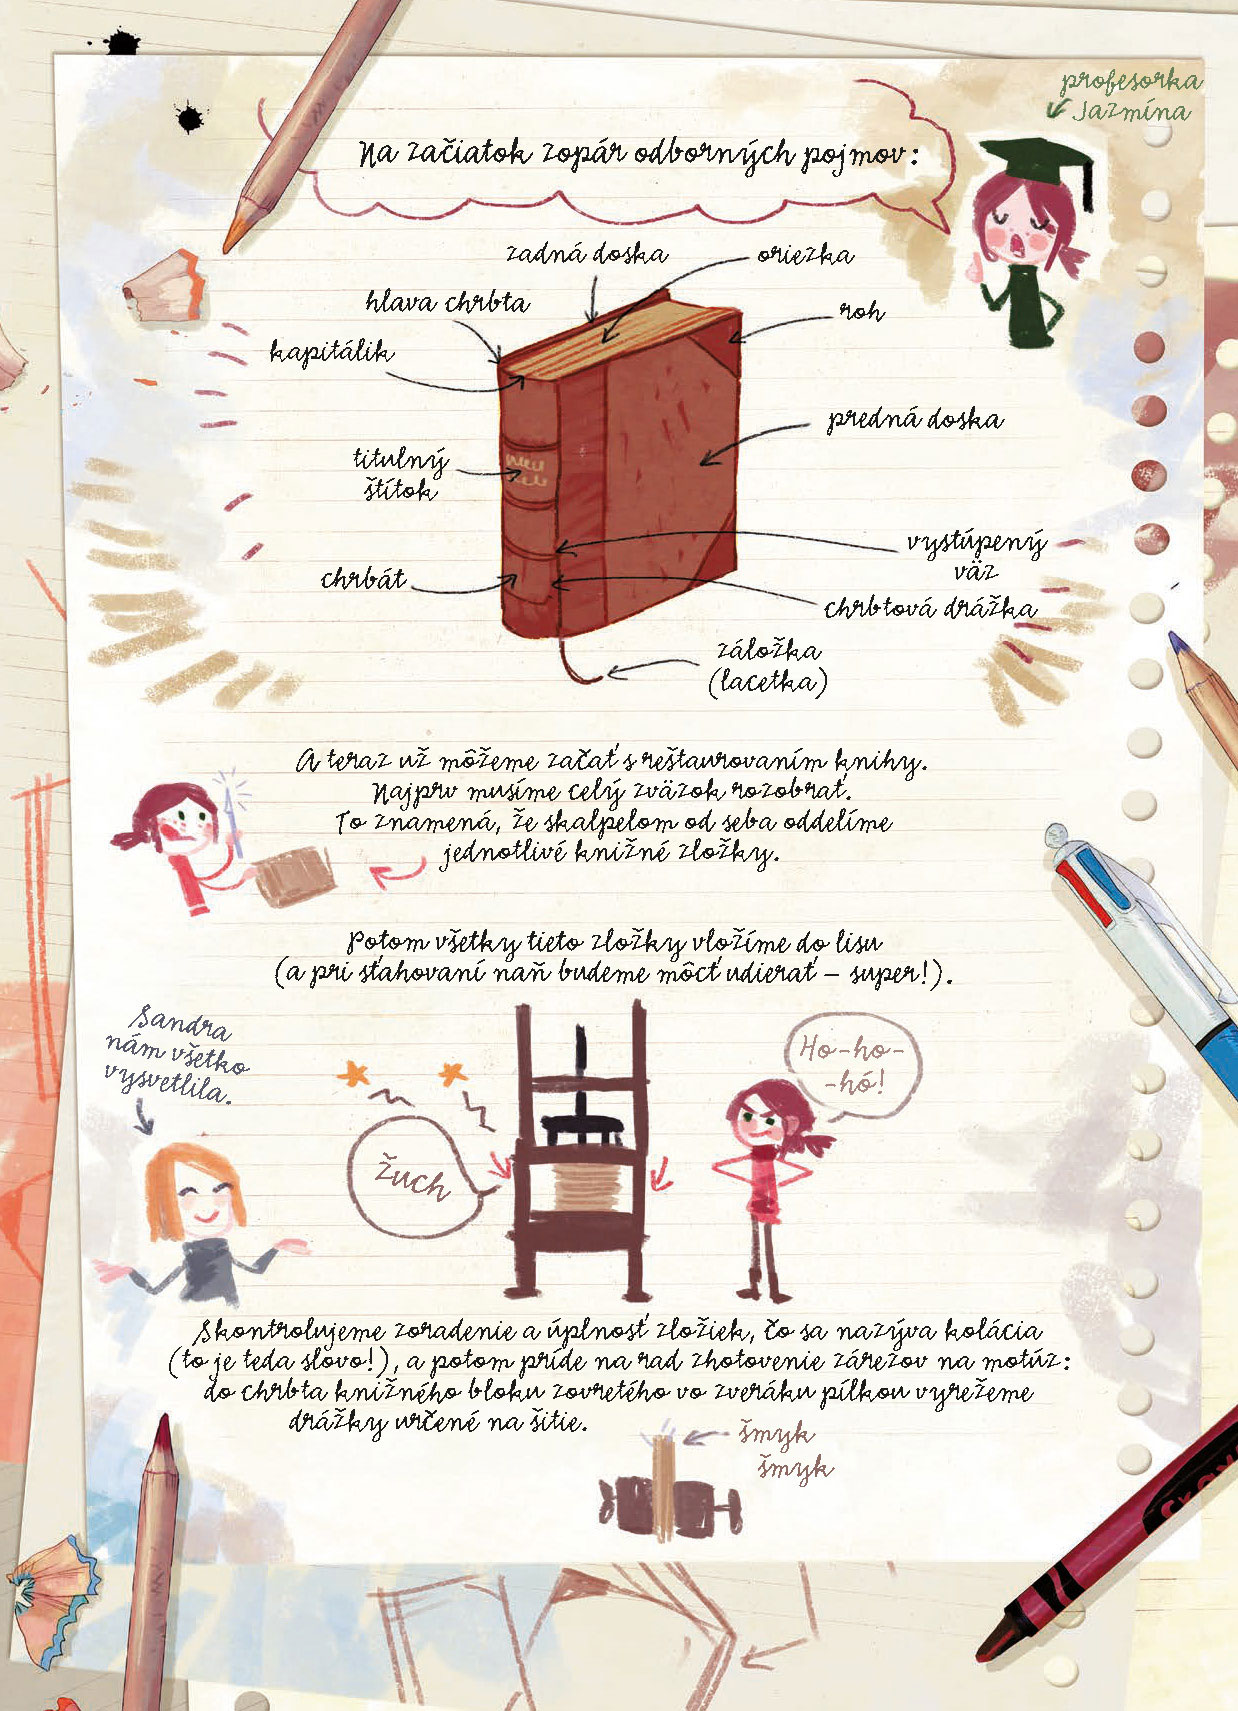 profesorka
Jazmína
Na začiatok zopár odborných pojmov:
zadná doska
oriezka
hlava chrbta
roh
kapitálik
predná doska
titulný
štítok
vystúpený
väz
chrbát
chrbtová drážka
záložka
(lacetka)
A teraz už môžeme začať s reštaurovaním knihy.
Najprv musíme celý zväzok rozobrať.
To znamená, že skalpelom od seba oddelíme
jednotlivé knižné zložky.
Potom všetky tieto zložky vložíme do lisu
(a pri sťahovaní naň budeme môcť udierať – super!).
Sandra
nám všetko
vysvetlila.
Ho-ho-
-hó!
Žuch
Skontrolujeme zoradenie a úplnosť zložiek, čo sa nazýva kolácia
(to je teda slovo!), a potom príde na rad zhotovenie zárezov na motúz:
do chrbta knižného bloku zovretého vo zveráku pílkou vyrežeme
drážky určené na šitie.
šmyk
šmyk